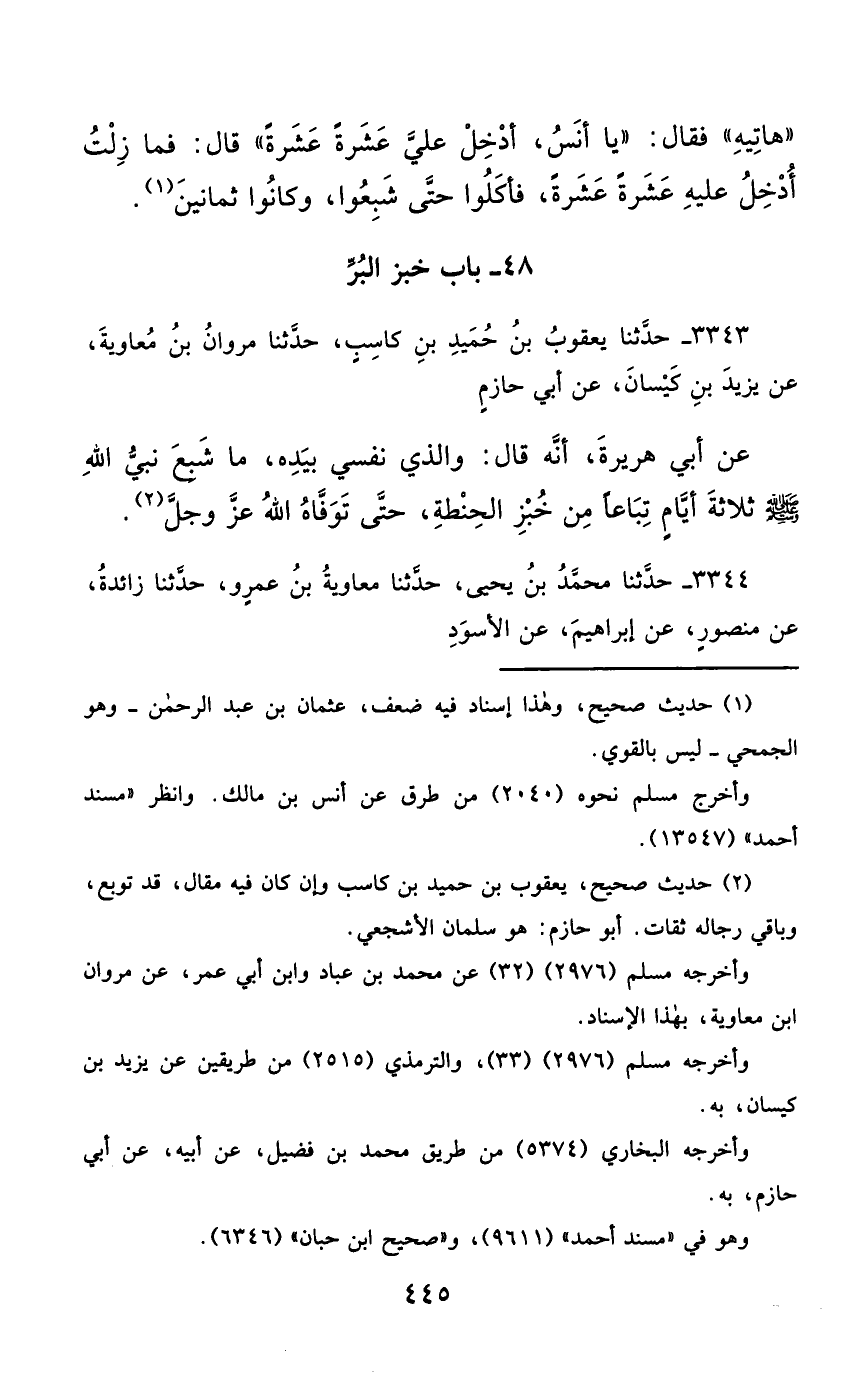 «هاتِيهِ» فقال: «يا أنَسُ، أدْخِلْ عليَّ عَشَرةً عَشَرةً» قال: فما زِلْتُ
أُدْخِلُ عليهِ عَشَرةً عَشَرةً، فأكَلُوا حتَّى شَبِعُوا، وكانُوا ثمانينَ(١).
٤٨ـ باب خبز البُرِّ
٣٣٤٣ـ حدَّثنا يعقوبُ بنُ حُمَيدِ بنِ كاسِبٍ، حدَّثنا مروانُ بنُ مُعاويةَ،
عن يزيدَ بنِ كَيْسانَ، عن أبي حازمٍ
عن أبي هريرةَ، أنَّه قال: والذي نفسي بيَدِه، ما شَبِعَ نبيُّ اللهِ
ﷺ ثلاثةَ أيَّامٍ تِبَاعاً مِن خُبْزِ الحِنْطةِ، حتَّى تَوَفَّاهُ اللهُ عزَّ وجلَّ(٢).
٣٣٤٤ـ حدَّثنا محمَّدُ بنُ يحيى، حدَّثنا معاويةُ بنُ عمرٍو، حدَّثنا زائدةُ،
عن منصورٍ، عن إبراهيمَ، عن الأسوَدِ
(١) حديث صحيح، وهٰذا إسناد فيه ضعف، عثمان بن عبد الرحمٰن ـ وهو
الجمحي ـ ليس بالقوي.
وأخرج مسلم نحوه (٢٠٤٠) من طرق عن أنس بن مالك. وانظر «مسند
أحمد» (١٣٥٤٧).
(٢) حديث صحيح، يعقوب بن حميد بن كاسب وإن كان فيه مقال، قد توبع،
وباقي رجاله ثقات. أبو حازم: هو سلمان الأشجعي.
وأخرجه مسلم (٢٩٧٦) (٣٢) عن محمد بن عباد وابن أبي عمر، عن مروان
ابن معاوية، بهٰذا الإسناد.
وأخرجه مسلم (٢٩٧٦) (٣٣)، والترمذي (٢٥١٥) من طريقين عن يزيد بن
كيسان، به.
وأخرجه البخاري (٥٣٧٤) من طريق محمد بن فضيل، عن أبيه، عن أبي
حازم، به.
وهو في «مسند أحمد» (٩٦١١)، و«صحيح ابن حبان» (٦٣٤٦).
٤٤٥